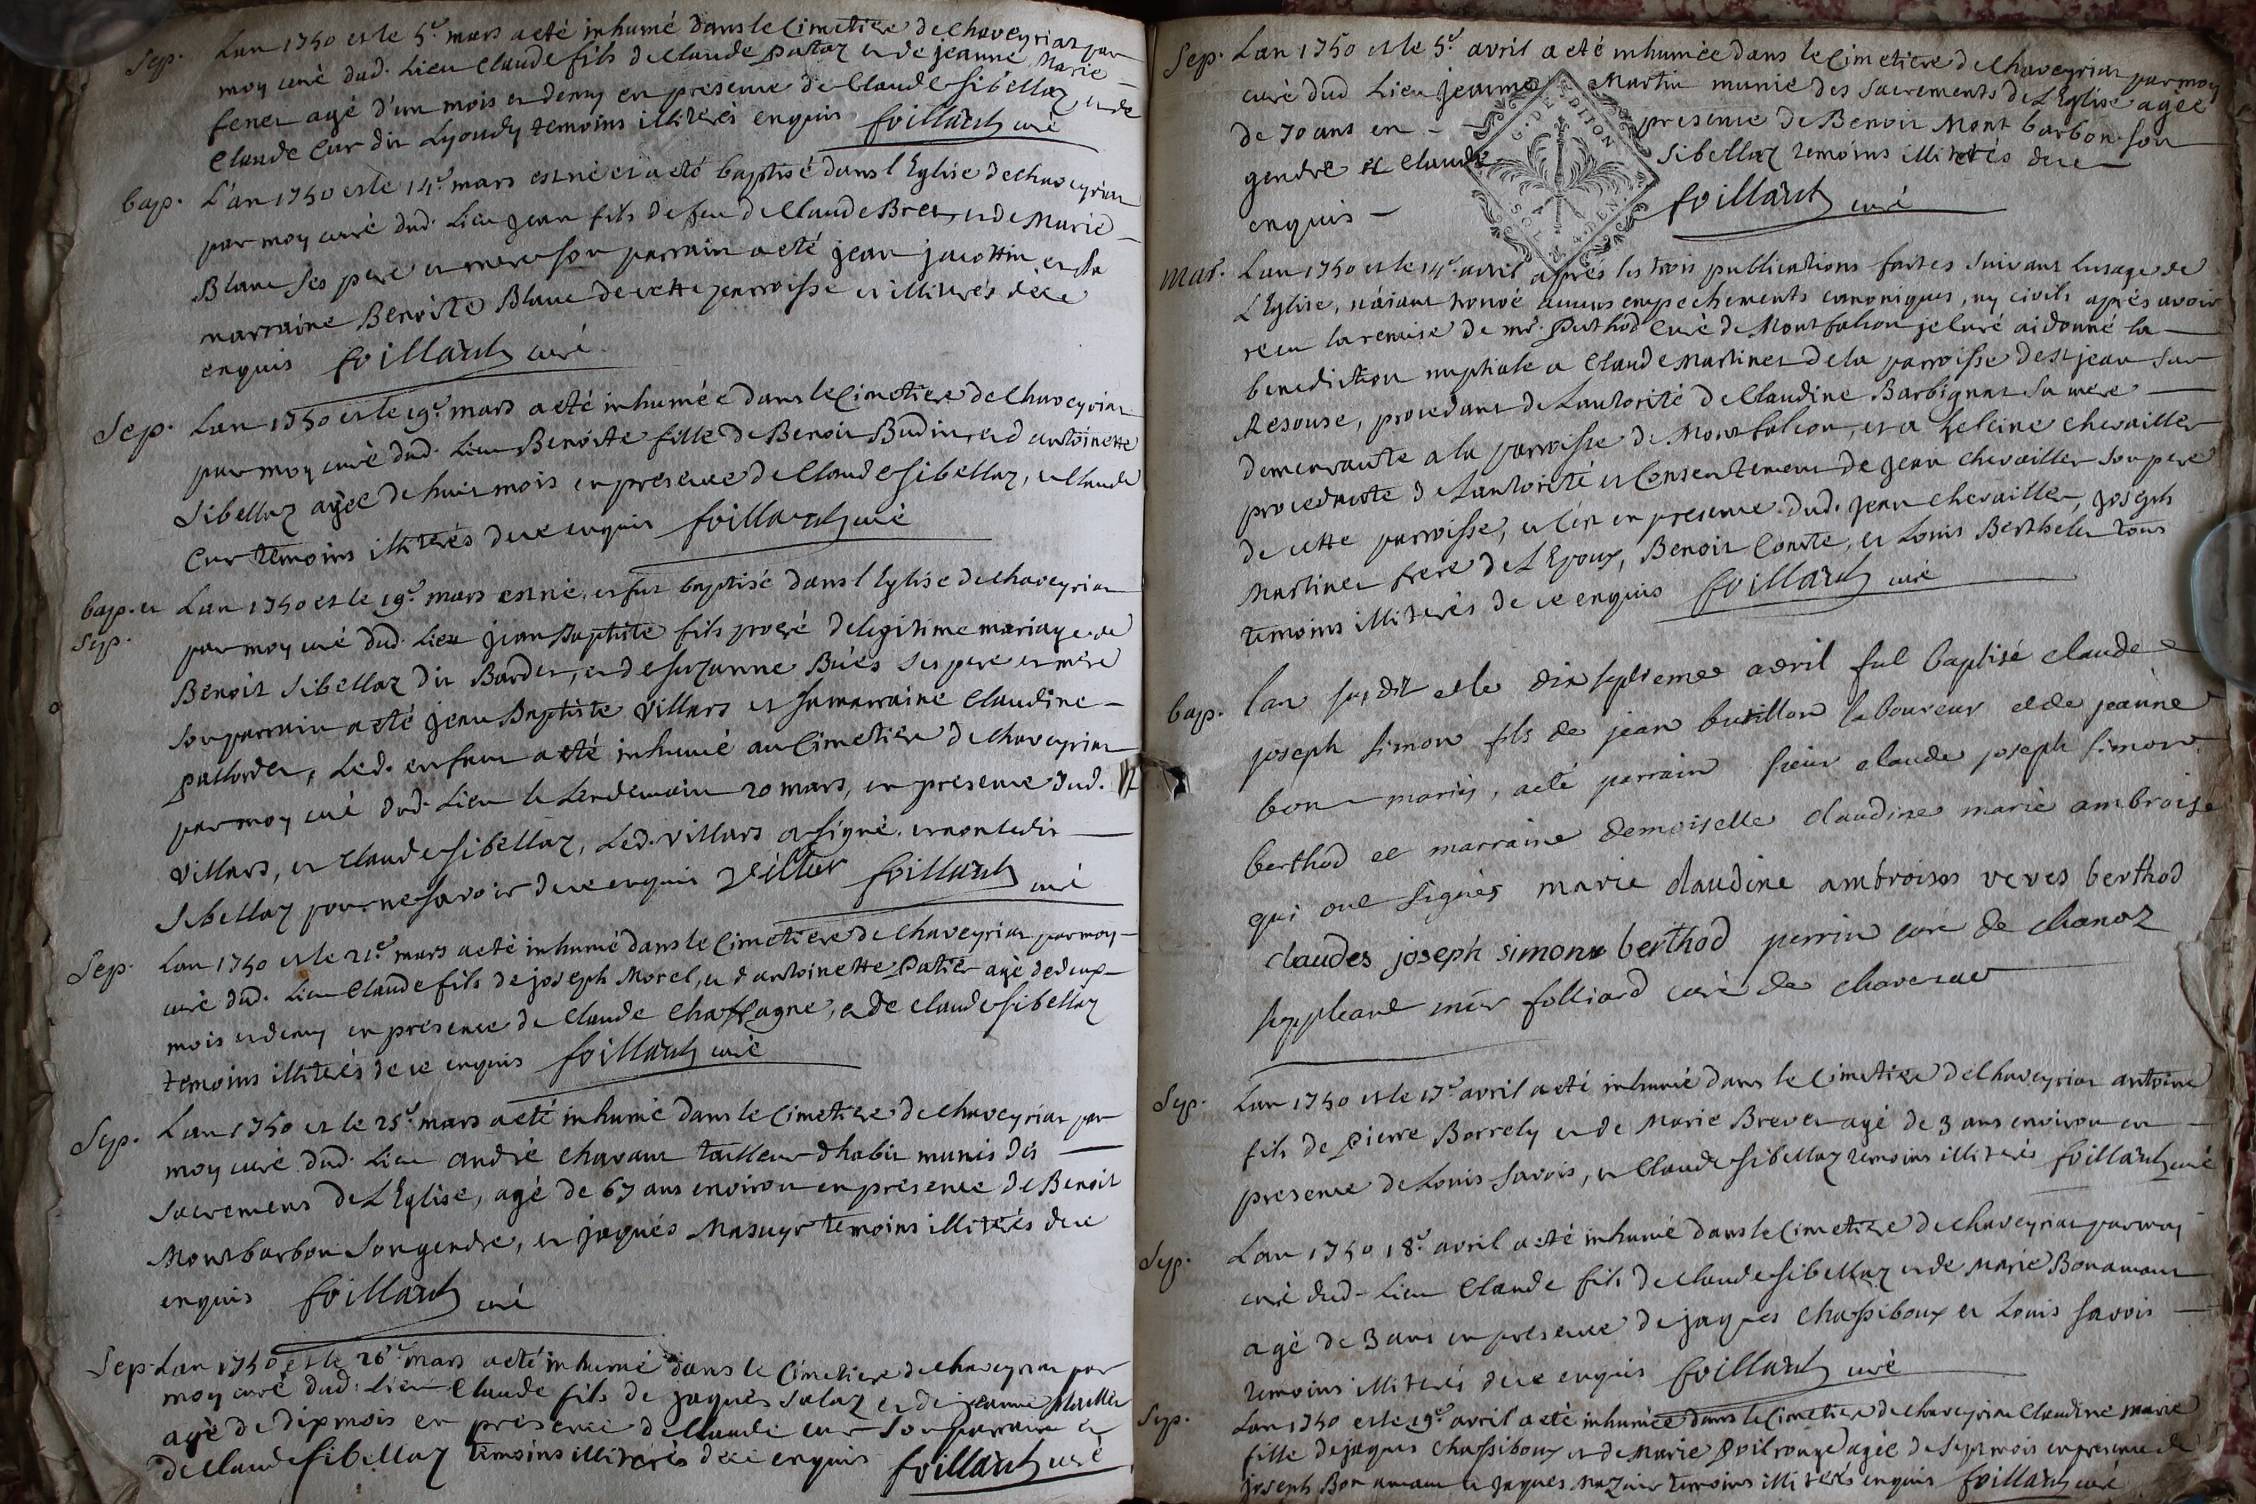 Sep. Lan 1750 et le 5e. mars a eté inhumé dans le Cimetiere de Chaveyriat par
moy curé dud. Lieu Claude fils de Claude et de jeanne Marie
fenet agé d'un mois et demy en presence de Claude Sibellaz et de
Claude Cur dit temoins illiterés enquis foillard curé
bap. L'an 1750 et le 14e. mars est né et a eté baptisé dans l'Eglise de Chaveyriat
par moy curé dud. Lieu jean fils de feu de Claude Bret et de Marie
Blanc ses pere et mere son parrain a eté jean jacottin et sa
marraine Benoite Blanc de cette parroisse et illiterés de ce
enquis foillard curé
Sep. Lan 1750 et le 19e. mars a eté inhumée dans le Cimetiere de Chaveyriat
par moy curé dud. Lieu Benoite fille de Benoit Budin et d'antoinette
Sibellaz agée de huit mois en presence de Claude Sibellaz, et Claude
Cur temoins illiterés de ce enquis foillard curé
bap. et Lan 1750 et le 19e. mars est né, et fut baptisé dans l'Eglise de Chaveyriat
sep. par moy curé dud. Lieu jean Baptiste fils procré de legitime mariage de
Benoit Sibellaz dit Bardet, et de Suzanne Buès ses pere et mere
son parrain a eté jean Baptiste Villars et sa marraine Claudine
, Led. enfant a eté inhumé au Cimetiere de Chaveyriat
par moy curé dud. Lieu le Lendemain 20 mars, en presence dud.
Villars, et Claude Sibellaz, Led. Villars a signé. et non ledit
Sibellaz pour ne savoir de ce enquis foillard curé
Sep. Lan 1750 et le 21e. mars a eté inhumé dans le Cimetiere de Chaveyriat par moy
curé dud. Lieu Claude fils de joseph Morel, et d'antoinette Patier agé de deux
mois et demy en presence de Claude Chassagne, et de Claude Sibellaz
temoins illiterés de ce enquis foillard curé
Sep. Lan 1750 et le 25e. mars a eté inhumé dans le Cimetiere de Chaveyriat par
moy curé dud. Lieu andré Chavant tailleur d'habit munis des
sacremens de L'Eglise, agé de 67 ans environ en presence de Benoit
Montbarbon son gendre, et jaques Mazuyr temoins illiterés de ce
enquis foillard curé
Sep. Lan 1750 et le 26e. mars a eté inhumé dans le Cimetiere de Chaveyriat par
moy curé dud. Lieu Claude fils de jaques Salaz et de jeanne
agé de dix mois en presence de Claude Cur son parrain et
de Claude Sibellaz temoins illiterés de ce enquis foillard curé
Sep. Lan 1750 et le 5e. avril a eté inhumée dans le Cimetiere de Chaveyriat par moy
curé dud. Lieu jeanne Martin munie des sacrements de L'Eglise agée
de 70 ans en presence de Benoit Montbarbon son
gendre et Claude Sibellaz temoins illiterés de ce
enquis foillard curé
G. DE DIJON
4. DEN.
Mar. Lan 1750 et le 14e. avril aprés les trois publications faites suivant lusage de
L'Eglise, n'aiant trouvé aucuns empechements canoniques, ny civils aprés avoir
recu la remise de mr. Puthod Curé de Montfalcon je curé ai donné la
benediction nuptiale a Claude Martinet de la parroisse de st jean sur
Resouse, procedant de Lautorité de Claudine Barbignat sa mere
demeurante a la parroisse de Montfalcon, et a heleine Chevailler
procedante de Lautorité et Consentement de jean Chevailler son pere
de cette parroisse, et c'en en presence dud. jean Chevailler, joseph
Martinet frere de L'Epoux, Benoit Conte, et Louis Berthelet tous
temoins illiterés de ce enquis foillard curé
bap. lan susdit et le dix septieme avril fut baptisé claude
joseph simon fils de jean butillon laboureur et de jeanne
bon mariés, a eté parrain sieur claude joseph simon
berthod et marraine demoiselle claudine marie ambroise
qui ont signés marie claudine ambroise veves berthod
claudes joseph simon berthod perrin curé de chanoz
suppleant mes folliard curé de chaveriat
Sep. Lan 1750 et le 17e. avril a eté inhumé dans le Cimetiere de Chaveyriat antoine
fils de pierre Borrely et de Marie Brevet agé de 3 ans environ en
presence de Louis Savois, et Claude Sibellaz temoins illiterés foillard curé
Sep. Lan 1750 18e. avril a eté inhumé dans le Cimetiere de Chaveyriat par moy
curé dud. Lieu Claude fils de Claude Sibellaz et de Marie Bonamour
agé de 3 ans en presence de jaques Chassiboux et Louis Savois
temoins illiterés de ce enquis foillard curé
Sep. Lan 1750 et le 19e. avril a eté inhumée dans le Cimetiere de Chaveyriat Claudine Marie
fille de jaques Chassiboux et de Marie Poilrouge agée de sept mois en presence de
joseph Bonamour et jaques Mazuir temoins illiterés enquis foillard curé